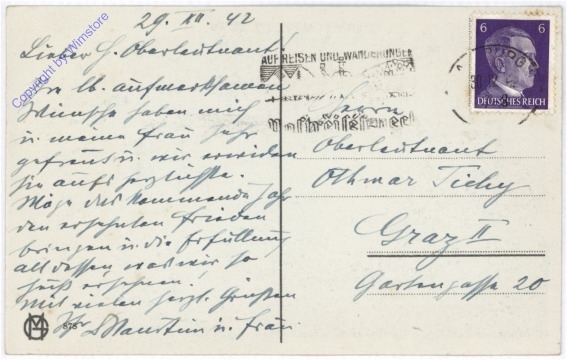 29. XII. 42
Lieber H. Oberleutnant!
Ihre lb. aufmerksamen
Wünsche haben mich
u. meine Frau sehr
gefreut u. wir erwidern
sie aufs herzlichste.
Möge das kommende Jahr
den ersehnten Frieden
bringen u. die Erfüllung
all dessen was wir so
heiß ersehnen.
Mit vielen herzl. Grüßen
Ihr u. Frau
HMO 878
Copyright by Wimstore
AUF REISEN UND WANDERUNGEN
Postreiseschecks
6 6
DEUTSCHES REICH
Herrn
Oberleutnant
Othmar Tichy
Graz II
Gartengasse 20